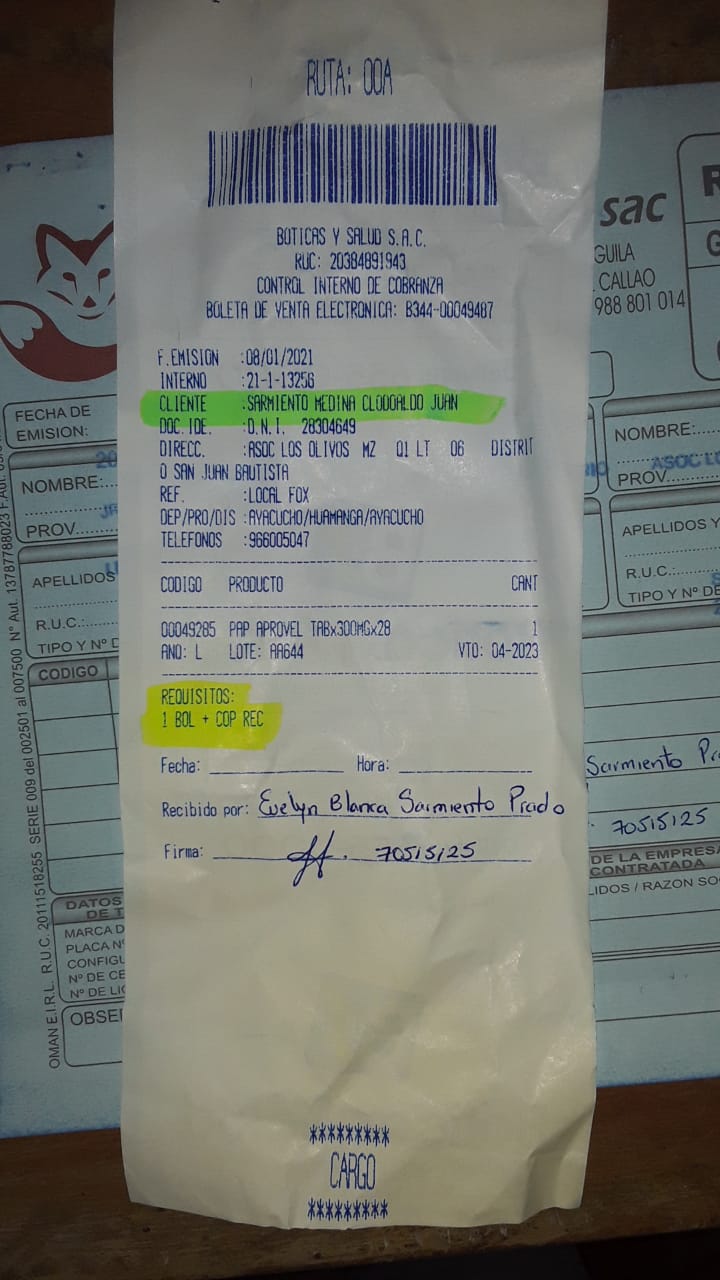 RUTA: 00A
BOTICAS Y SALUD S.A.C.
RUC: 20384891943
CONTROL INTERNO DE COBRANZA
BOLETA DE VENTA ELECTRONICA: B344-00049487
F.EMISION :08/01/2021
INTERNO :21-1-13256
CLIENTE :SARMIENTO MEDINA CLODOALDO JUAN
DOC. IDE. :D.N.I. 28304649
DIRECC. :ASOC LOS OLIVOS MZ Q1 LT 06 DISTRIT
O SAN JUAN BAUTISTA
REF. :LOCAL FOX
DEP/PRO/DIS :AYACUCHO/HUAMANGA/AYACUCHO
TELEFONOS :966005047
CODIGO PRODUCTO CANT
00049285 PAP APROVEL TABx300MGx28 1
ANO: L LOTE: AA644 VTO: 04-2023
REQUISITOS:
1 BOL + COP REC
Fecha: Hora:
Recibido por: Evelyn Blanca Sarmiento Prado
Firma: 70515125
*********
CARGO
*********
FECHA DE
EMISION:
NOMBRE:
PROV.
APELLIDOS
R.U.C.:
TIPO Y Nº D
CODIGO
DATOS
DE T
MARCA D
PLACA Nº
CONFIGU
Nº DE CE
Nº DE LIC
OBSE
OMAN E.I.R.L. R.U.C. 20111518255 SERIE 009 del 002501 al 007500 Nº Aut. 13787788023 F.Aut.
sac
R
G
GUILA
CALLAO
988 801 014
NOMBRE:
ASOC LO
PROV.
APELLIDOS Y
R.U.C.:
TIPO Y Nº DE
Sarmiento Pr
70515125
DE LA EMPRESA
CONTRATADA
LIDOS / RAZON SO